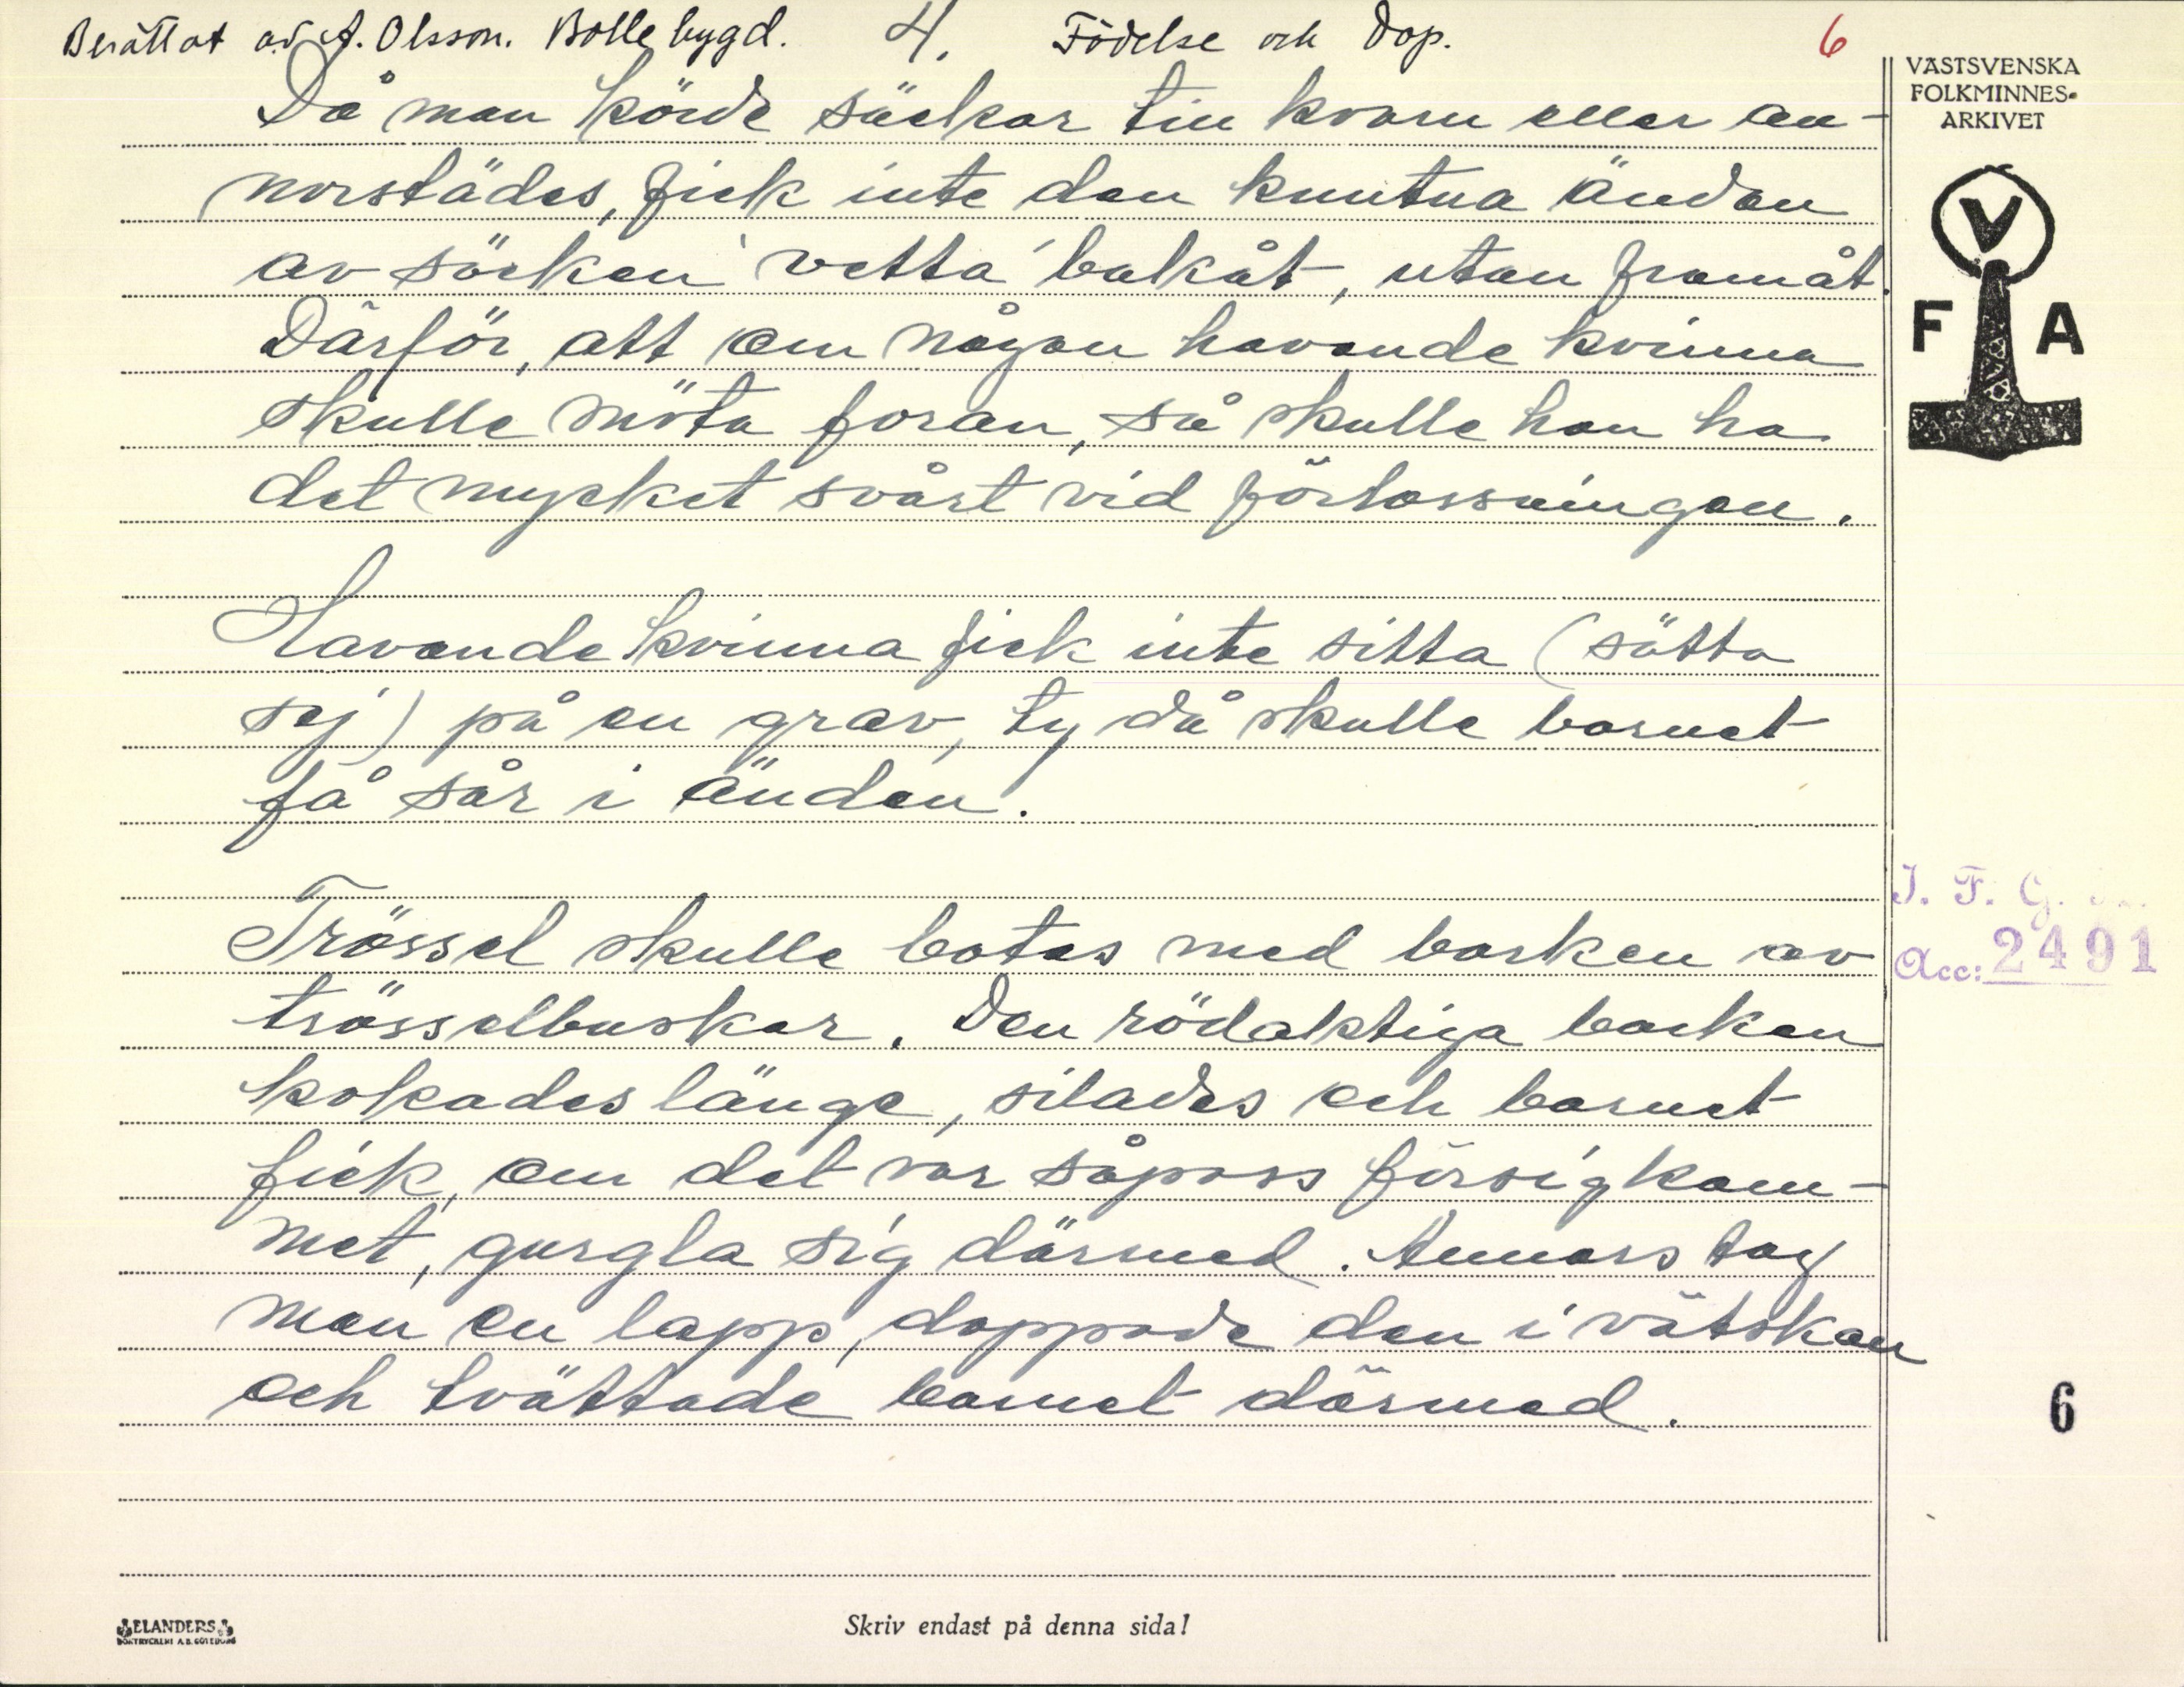 Berättat av A. Olsson. Bollebygd. 4. Födelse och Dop. 6
VÄSTSVENSKA
FOLKMINNES-
ARKIVET
V
F A
Då man körde säckar till kvarn eller an-
norstädes, fick inte den knutna ändan
av säcken "vetta" bakåt, utan framåt.
Därför, att om någon havande kvinna
skulle möta foran, så skulle hon ha
det mycket svårt vid förlossningen.
Havande kvinna fick inte sitta (sätta
sej) på en grav, ty då skulle barnet
få sår i änden.
Trössel skulle botas med barken av
trösselbuskar. Den rödaktiga barken
kokades länge, silades och barnet
fick, om det var såpass försigkom-
met, gurgla sig därmed. Annars tog
man en lapp, doppade den i vätskan
och tvättade barnet därmed.
I. F. G.
Acc: 2491
6
ELANDERS
BOKTRYCKERI A.B. GÖTEBORG
Skriv endast på denna sida!